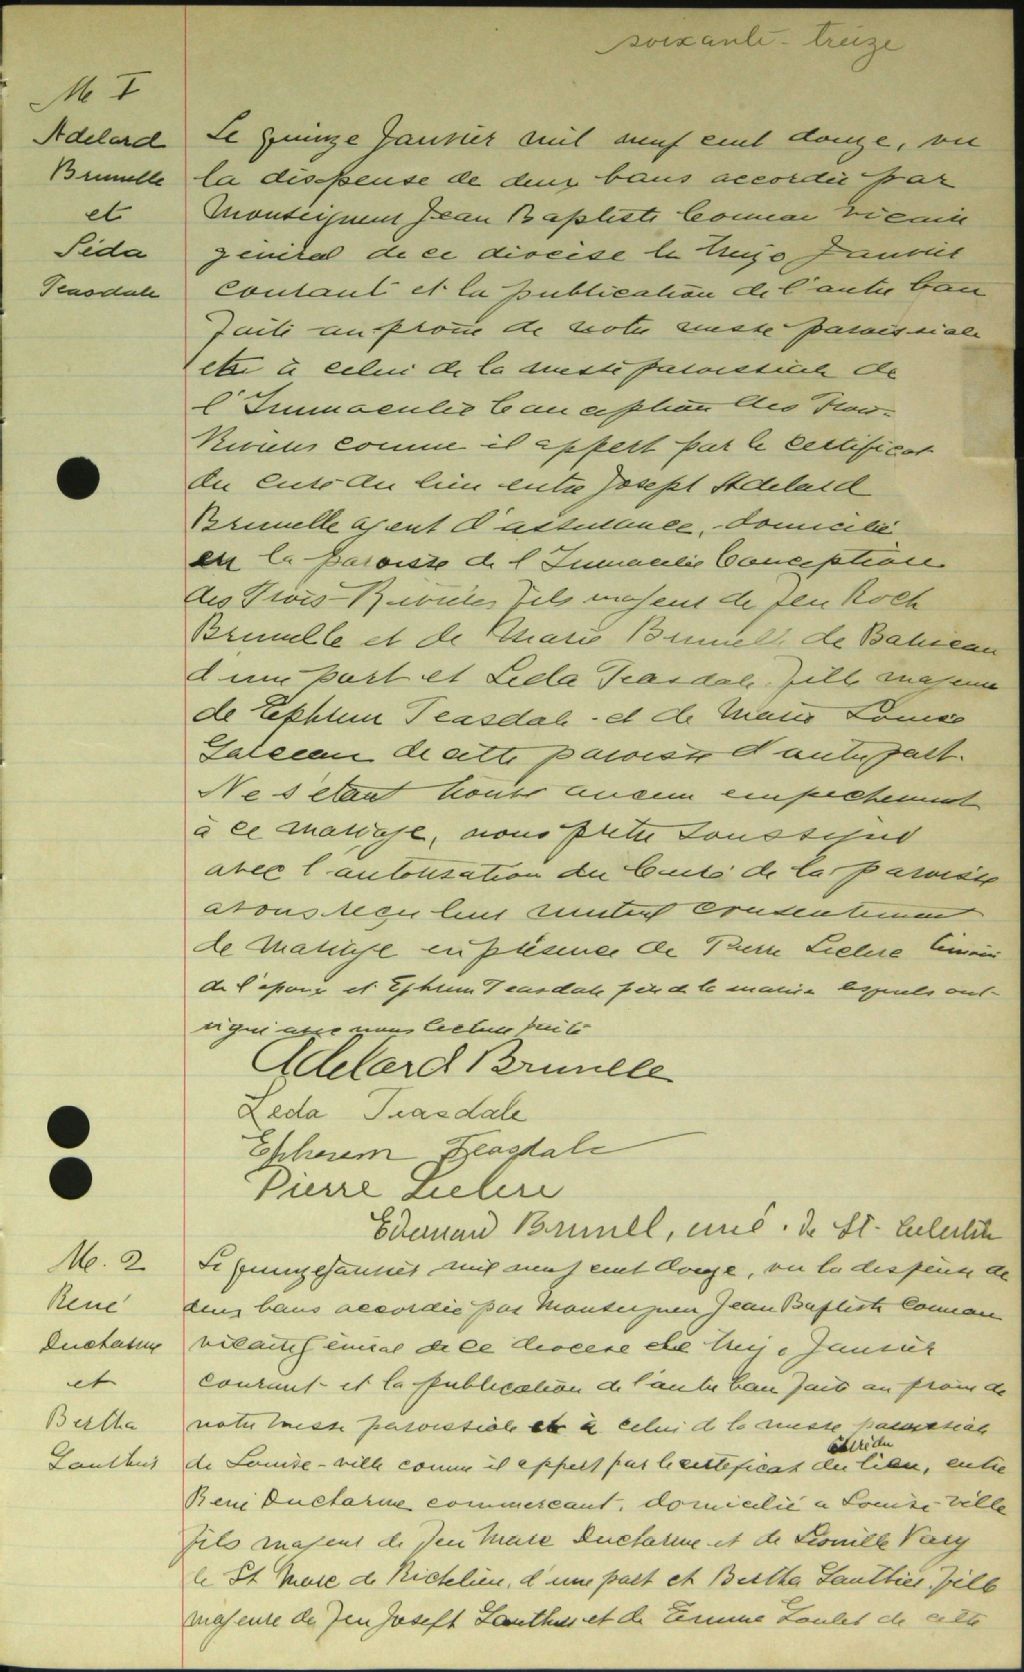 soixante-treize
M I
Adelard
Brunelle
et
Léda
Teasdale
Le quinze Janvier mil neuf cent douze, vu
la dispense de deux bans accordée par
Monseigneur Jean Baptiste Comeau vicaire
général de ce diocèse le treize Janvier
courant et la publication de l'autre ban
faite au prone de notre messe paroissiale
et à celui de la messe paroissiale de
l'Immaculée Conception des Trois-
Rivières comme il appert par le certificat
du curé du lieu entre Joseph Adelard
Brunelle agent d'assurance, domicilié
en la paroisse de l'Immaculée Conception
des Trois-Rivières fils majeur de feu Roch
Brunelle et de Marie Brunell de Batiscan
d'une part et Leda Teasdale fille majeure
de Ephrem Teasdale et de Marie Louise
Garceau de cette paroisse d'autre part.
Ne s'étant trouvé aucun empechement
à ce mariage, nous prêtre soussigné
avec l'autorisation du Curé de la paroisse
avons reçu leur mutuel consentement
de mariage en présence de Pierre Leclerc témoin
de l'époux et Ephrem Teasdale père de la mariée lesquels ont
signé avec nous lecture faite
Adelard Brunelle
Leda Teasdale
Ephrem Teasdale
Pierre Leclerc
Edouard Brunell, curé. de St-Celestin
M. 2
René
Ducharme
et
Bertha
Gauthier
Le quinze Janvier mil neuf cent douze, vu la dispense de
deux bans accordée par Monseigneur Jean Baptiste Comeau
vicaire général de ce diocese le treize Janvier
courant et la publication de l'autre ban faite au prone de
notre messe paroissiale et à celui de la messe paroissiale
de Louise-ville comme il appert par le certificat du curé du lieu, entre
René Ducharme commercant, domicilié a Louise-ville
fils majeur de feu Marc Ducharme et de Leonille Vary
de St Marc de Richelieu, d'une part et Bertha Gauthier fille
majeure de feu Joseph Gauthier et de Emma Goulet de cette